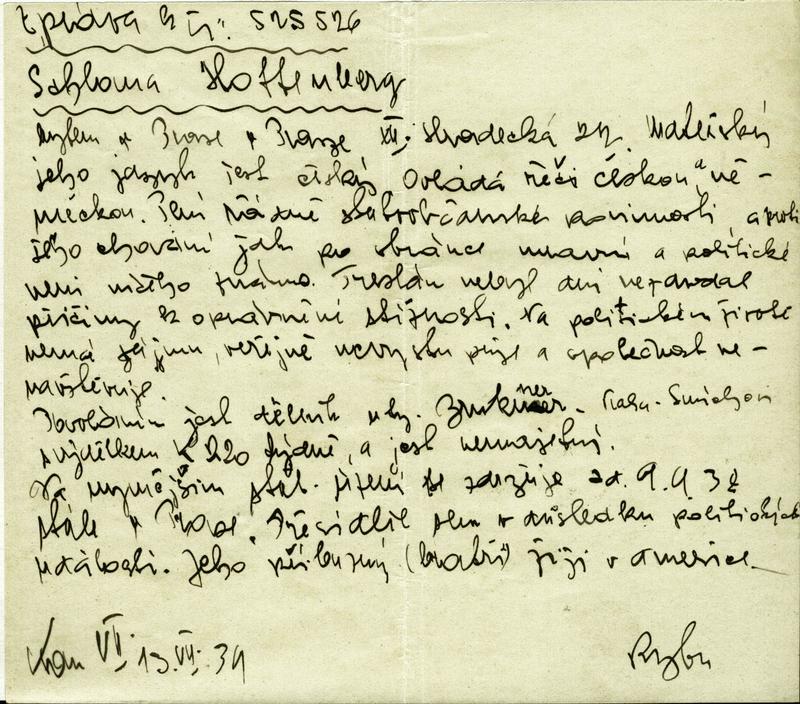 Zpráva k čj. 525526
Schloma Hoffenberg
bytem v Praze v Praze XII., Hradecká 27. Mateřský
jeho jazyk jest český Ovládá řeči českou a ně-
meckou. Plní řádně státoobčanské povinnosti a proti
jeho chování jak po stránce mravní a politické
není ničeho známo. Trestán nebyl ani nezavdal
příčiny k oprávněné stížnosti. Na politickém životě
nemá zájmu, veřejně nevystupuje a společnost ne-
navštěvuje.
Povoláním jest dělník u Praha-Smíchov
s výdělkem K 220 týdně, a jest nemajetný.
Na nynějším stát. území se zdržuje od 9.9 38
stále v Praze. Přesídlil sem v důsledku politických
událostí. Jeho příbuzný (bratři) žijí v Americe.
VII. 13.VII.39
Ryba